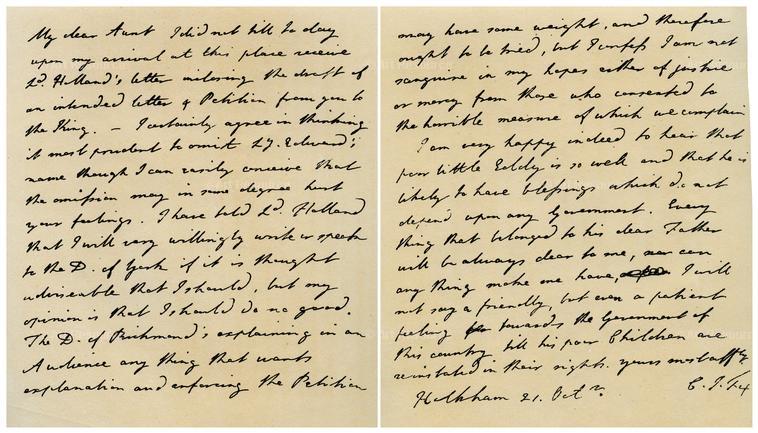 My dear Aunt I did not till to day
upon my arrival at this place receive
Ld. Holland's letter inclosing the draft of
an intended letter & Petition from you to
the King. — I certainly agree in thinking
it most prudent to omit Ly. Edward's
name though I can easily conceive that
the omission may in some degree hurt
your feelings. I have told Ld. Holland
that I will very willingly write or speak
to the D. of York if it is thought
adviseable that I should, but my
opinion is that I should do no good.
The D. of Richmond's explaining in an
Audience any thing that wants
explanation and enforcing the Petition
may have some weight, and therefore
ought to be tried, but I confess I am not
sanguine in my hopes either of justice
or mercy from those who consented to
the horrible measure of which we complain
I am very happy indeed to hear that
poor little Eddy is so well and that he is
likely to have blessings which do not
depend upon any Government. Every
thing that belonged to his dear Father
will be always dear to me, nor can
any thing make me have, I will
not say a friendly, but even a patient
feeling towards the Government of
this country till his poor Children are
reinstated in their rights. yours most affly
C. J. Fox
Holkham 21. Octr.